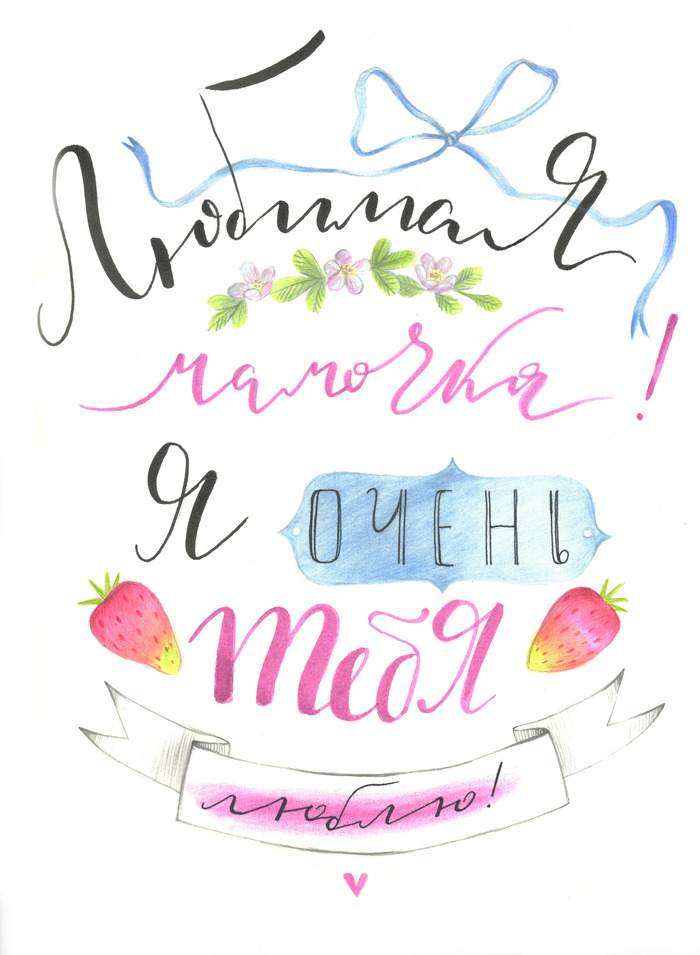 Любимая
мамочка!
Я ОЧЕНЬ
тебя
люблю!